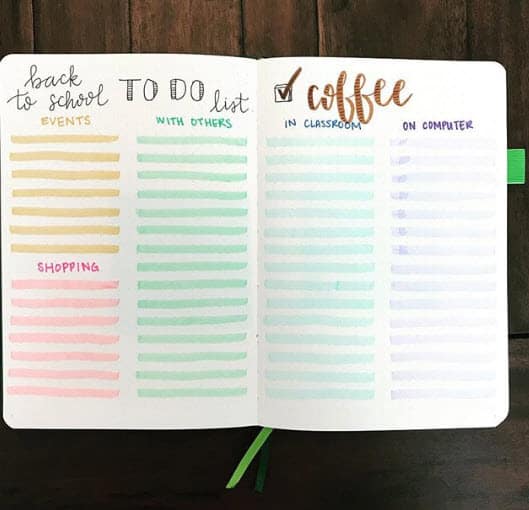 back
to school
TO DO
list
coffee
EVENTS
SHOPPING
WITH OTHERS
IN CLASSROOM
ON COMPUTER